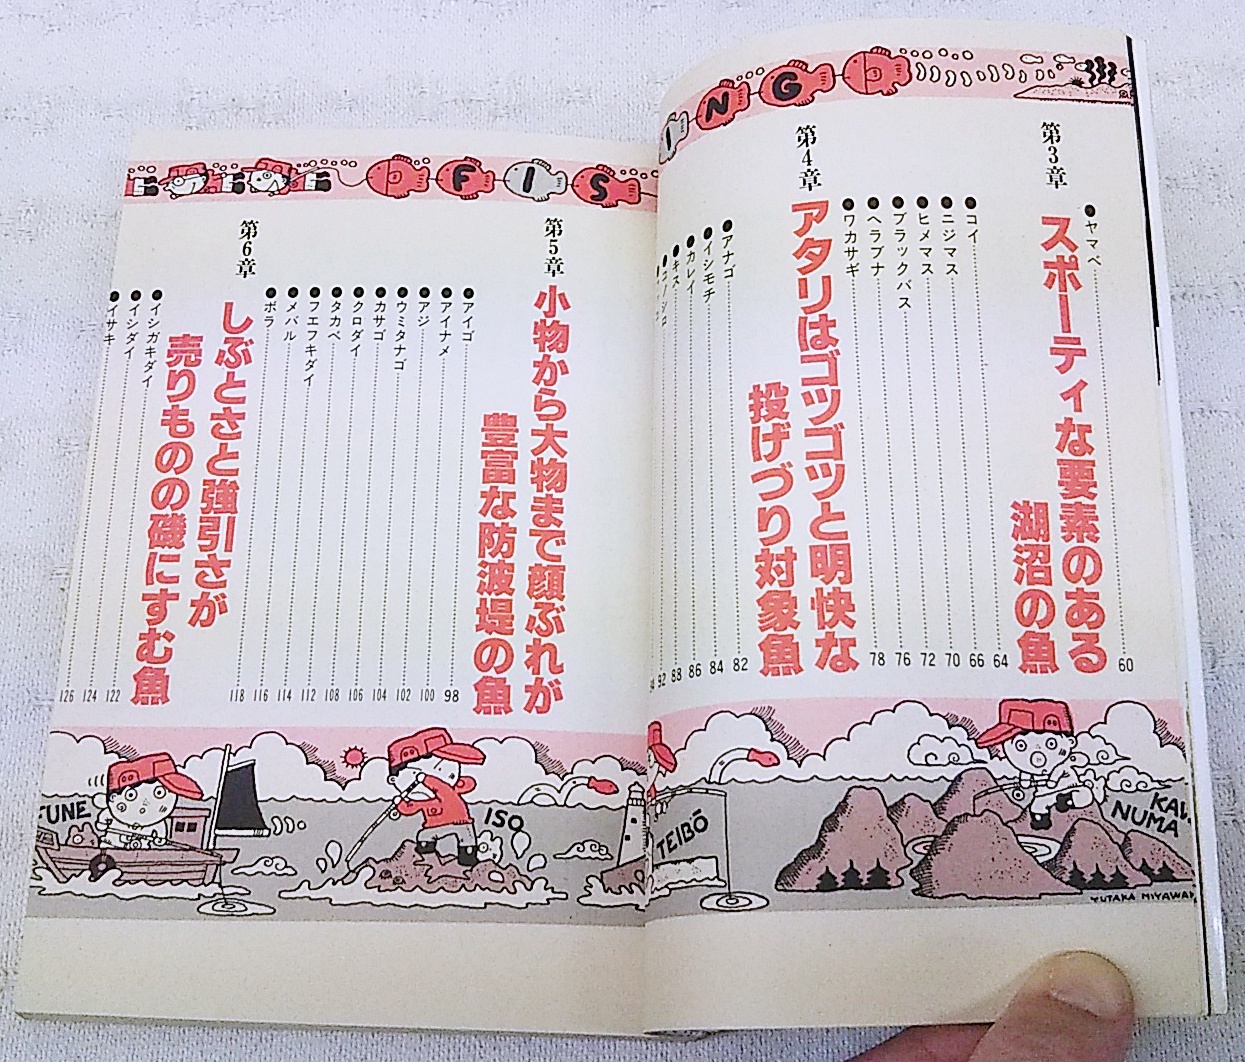 F I S
I N G
第3章
スポーティな要素のある
湖沼の魚
●ヤマベ 60
●コイ 64
●ニジマス 66
●ヒメマス 70
●ブラックバス 72
●ヘラブナ 76
●ワカサギ 78
第4章
アタリはゴツゴツと明快な
投げづり対象魚
●アナゴ 82
●イシモチ 84
●カレイ 86
●キス 88
92
第5章
小物から大物まで顔ぶれが
豊富な防波堤の魚
●アイゴ 98
●アイナメ 100
●アジ 102
●ウミタナゴ 104
●カサゴ 106
●クロダイ 108
●タカベ 112
●フエフキダイ 114
●メバル 116
●ボラ 118
第6章
しぶとさと強引さが
売りものの磯にすむ魚
●イシガキダイ 122
●イシダイ 124
●イサキ 126
NUMA
TEIBŌ
ISO
FUNE
YUTAKA MIYAWAKI